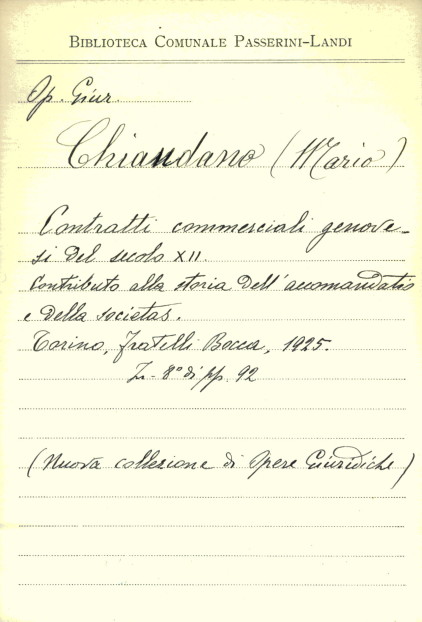 BIBLIOTECA COMUNALE PASSERINI-LANDI
Op. Giur.
Chiaudano (Mario)
Contratti commerciali genove-
si del secolo XII.
Contributo alla storia dell'accomandatio
e della societas.
Torino, Fratelli Bocca, 1925.
8° di pp. 92
(Nuova collezione di Opere Giuridiche)